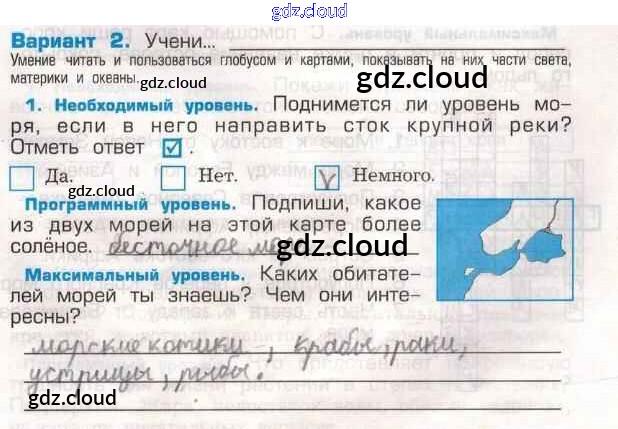 gdz.cloud
Вариант 2. Учени...
Умение читать и пользоваться глобусом и картами, показывать на них части света,
материки и океаны.
gdz.cloud
1. Необходимый уровень. Поднимется ли уровень мо-
ря, если в него направить сток крупной реки?
Отметь ответ ☑.
gdz.cloud
Да.
Нет.
Немного.
gdz.cloud
Программный уровень. Подпиши, какое
из двух морей на этой карте более
солёное. бесточное
gdz.cloud
Максимальный уровень. Каких обитате-
лей морей ты знаешь? Чем они инте-
ресны?
морские котики, крабы, раки,
устрицы, рыбы.
gdz.cloud
gdz.cloud